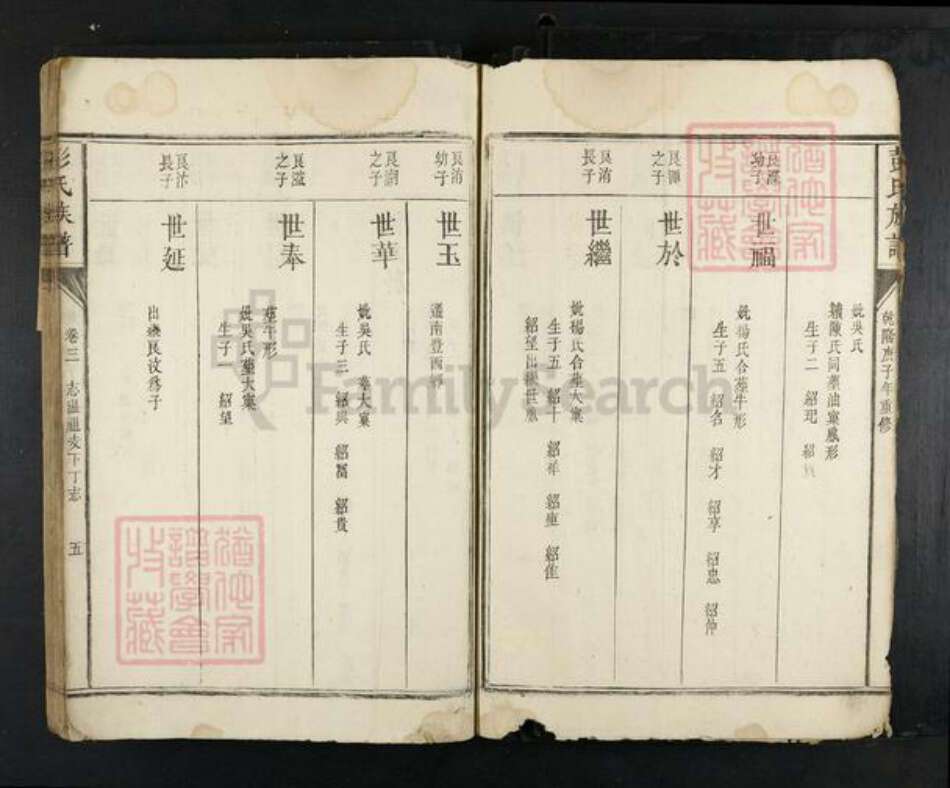 彭氏族譜
乾隆庚子年重修
妣吳氏
續陳氏同葬油寮鳳形
生子二 紹玘 紹
幼子
世福
妣楊氏合葬牛形
生子五 紹名 紹才 紹享 紹忠 紹仲
之子
世於
良洧
長子
世繼
妣楊氏合葬大窠
生子五 紹十 紹祥 紹 紹
紹望出繼世鳳
良洧
幼子
世玉
遷南豐西鄉
之子
世華
妣吳氏 葬大窠
生子三 紹興 紹富 紹貴
良溢
之子
世奉
葬牛形
妣吳氏葬大窠
生子一 紹望
長子
世延
出繼良汶為子
彭氏族譜
卷三 志溫祖支下丁志 五
猶他家譜學會收藏
猶他家譜學會收藏
FamilySearch